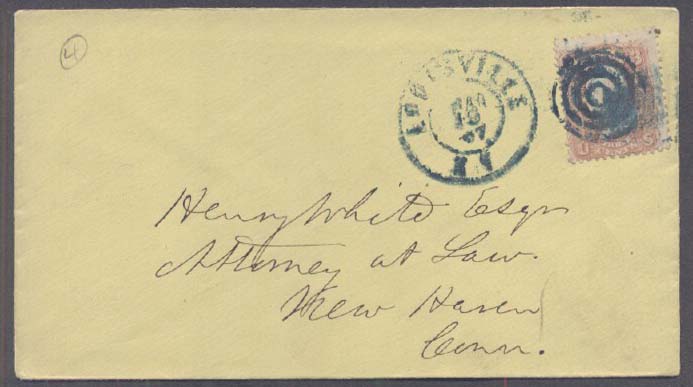 4
LOUISVILLE
MAR
18
67
KY
Henry White Esqr
Attorney at Law.
New Haven
Conn.